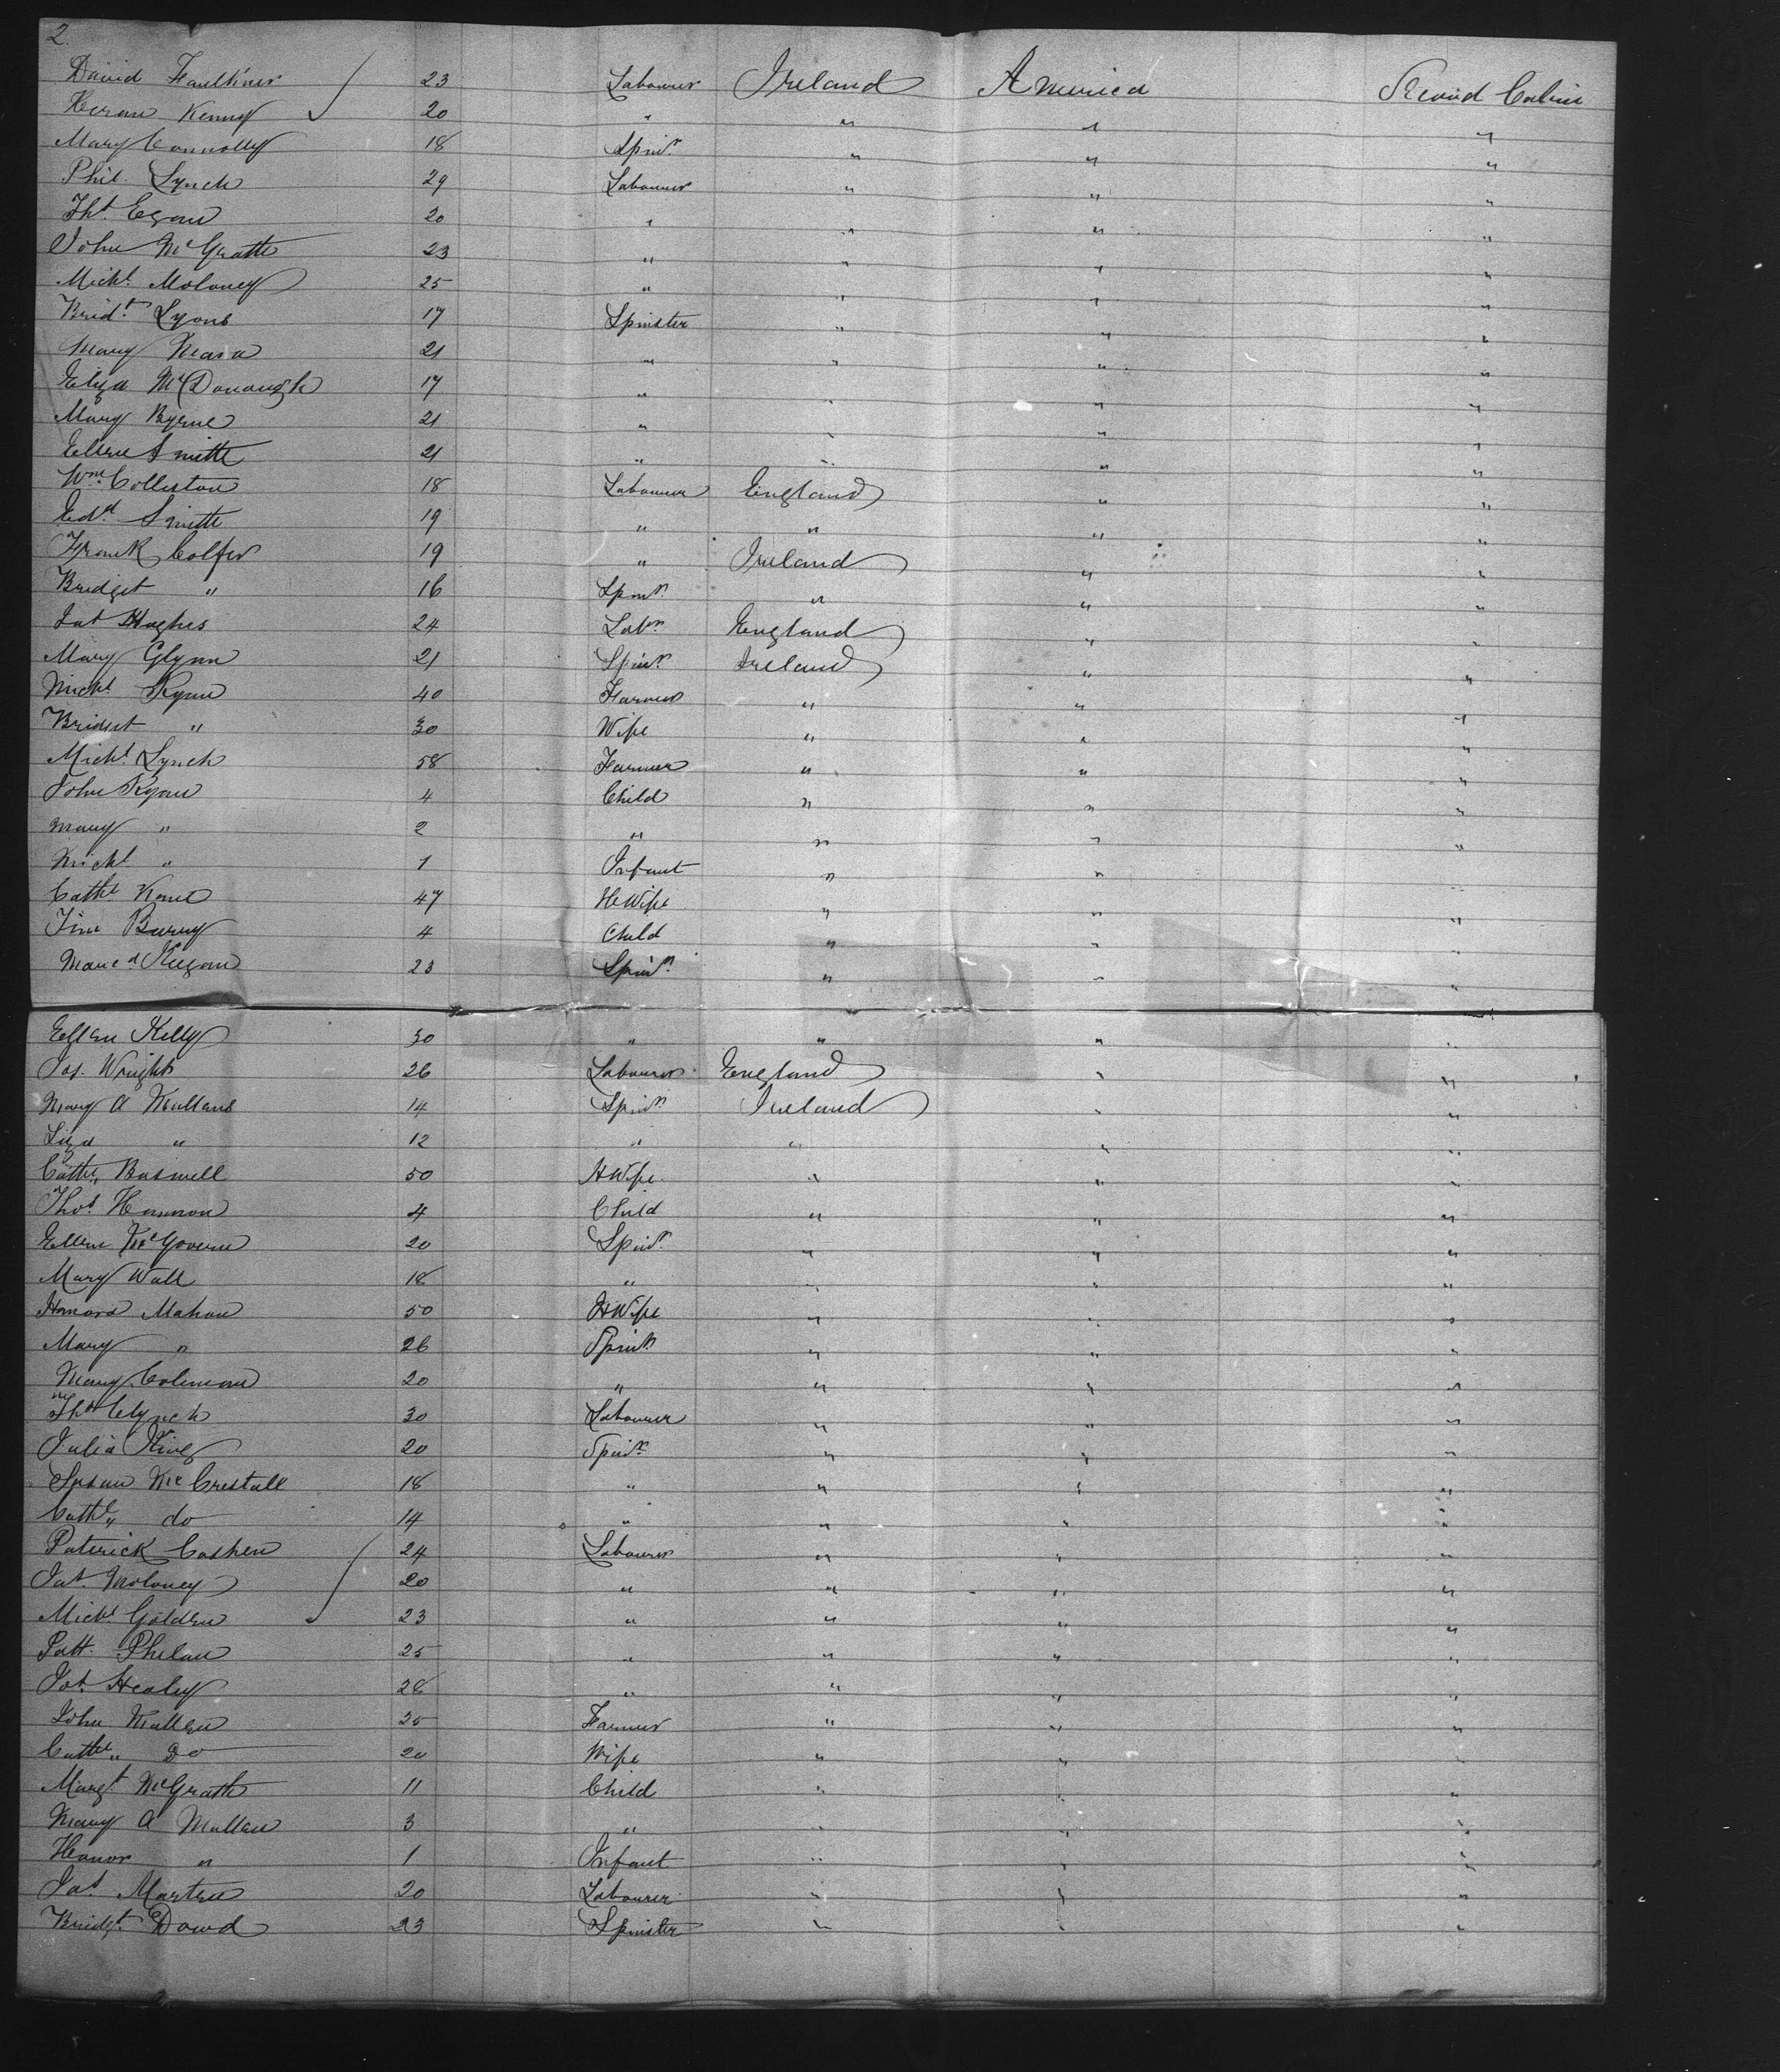 2.
David Faulkner 23 Labourer Ireland America Second Cabin
Kieran Kenny 20 " " " "
Mary Connolly 18 Spinr. " " "
Phil. Lynch 29 Labourer " " "
Ths. Egan 20 " " " "
John McGrath 23 " " " "
Michl. Moloney 25 " " " "
Bridt. Lyons 17 Spinster " " "
Mary Mara 21 " " " "
Eliza McDonough 17 " " " "
Mary Byrne 21 " " " "
Ellen Smith 21 " " " "
Wm. Colliston 18 Labourer England " "
Edd. Smith 19 " " " "
Frank Colfer 19 " Ireland " "
Bridget " 16 Spinr. " " "
Jas Hughes 24 Labr. England " "
Mary Glynn 21 Spinr. Ireland " "
Michl. Ryan 40 Farmer " " "
Bridget " 30 Wife " " "
Michl. Lynch 58 Farmer " " "
John Ryan 4 Child " " "
Mary " 2 " " " "
Michl. " 1 Infant " " "
Cathe. Kane 47 HWife " " "
Jim Barry 4 Child " " "
Keegan 23 Spinr. " " "
Ellen Kelly 30 " " " "
Jas. Wright 26 Labourer England " "
Mary A Mullens 14 Spinr. Ireland " "
Liza " 12 " " " "
Cathe. Buswell 50 HWife " " "
Thos. Hannon 4 Child " " "
Ellen McGovern 20 Spinr. " " "
Mary Wall 18 " " " "
Honora Mahon 50 HWife " " "
Mary " 26 Spinr. " " "
Mary Coleman 20 " " " "
Ths. Clynch 30 Labourer " " "
Julia King 20 Spinr. " " "
Susan McCrestall 18 " " " "
Cathe. do 14 " " " "
Paterick Cashen 24 Labourer " " "
Jas. Moloney 20 " " " "
Michl. Golden 23 " " " "
Patt. Phelan 25 " " " "
Jas. Healey 28 " " " "
John Mullen 25 Farmer " " "
Cathe. Do 20 Wife " " "
Margt. McGrath 11 Child " " "
Mary A Mullen 3 " " " "
Honor " 1 Infant " " "
Jas. Marten 20 Labourer " " "
Bridgt. Dowd 23 Spinster " " "